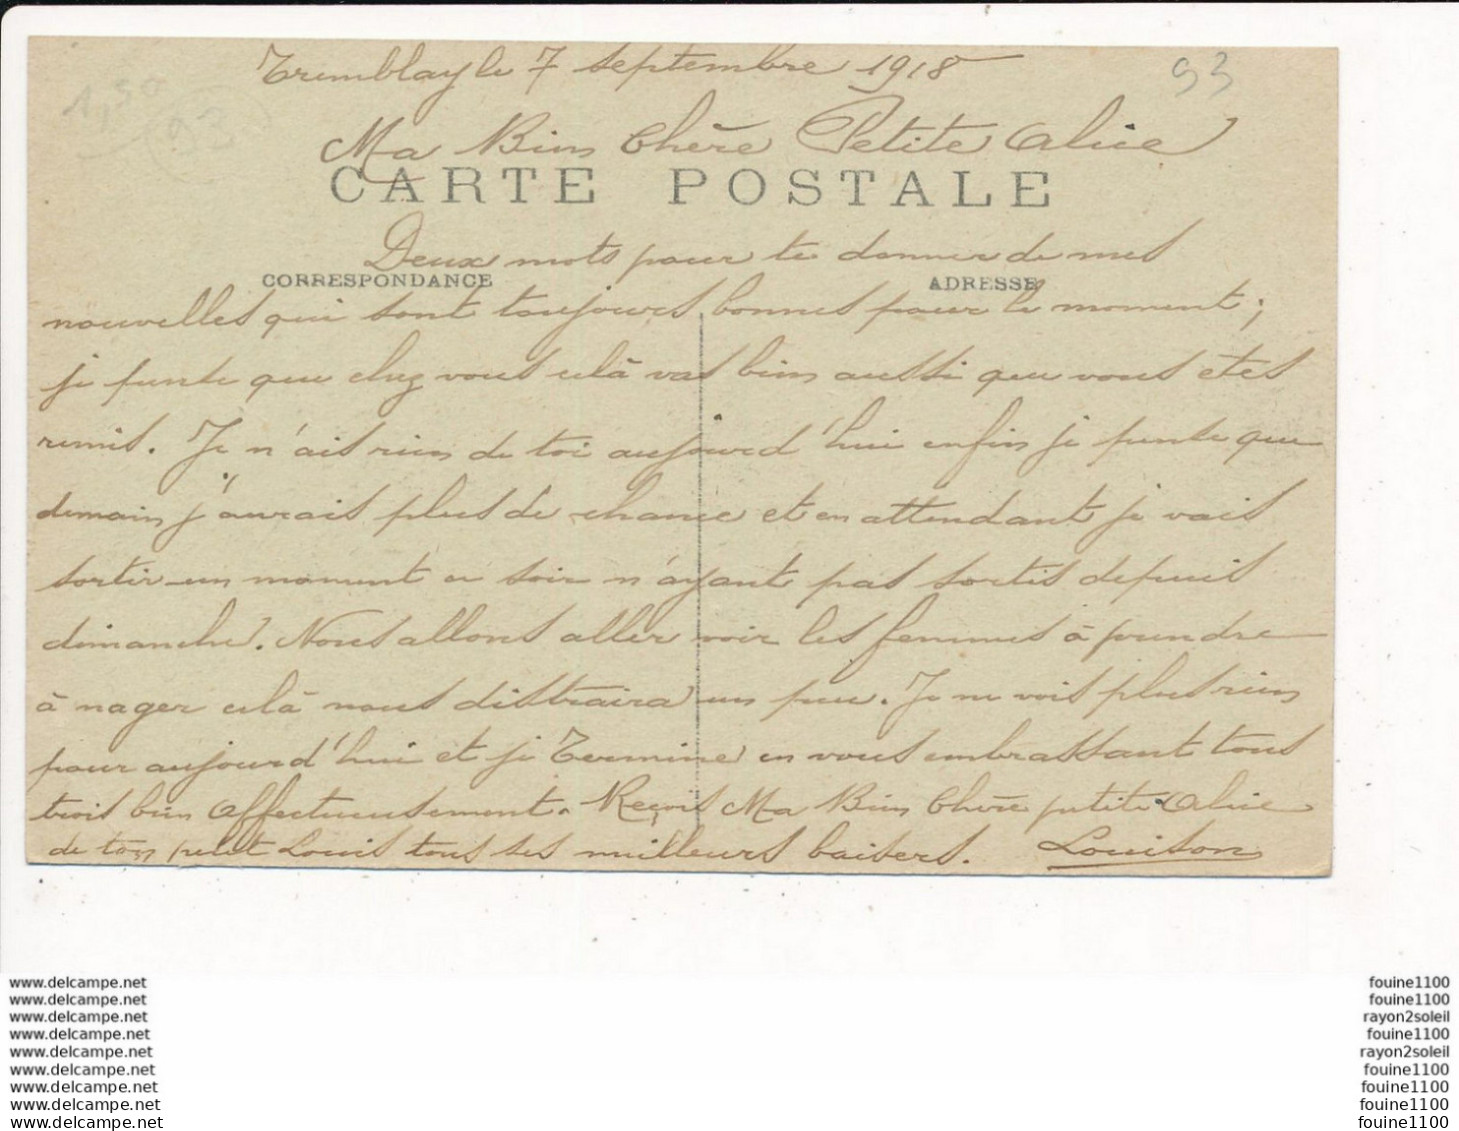 Tremblay le 7 septembre 1918
93
1,50
93
Ma Bien Chère Petite Alice
CARTE POSTALE
Deux mots pour te donner de mes
CORRESPONDANCE
ADRESSE
nouvelles qui sont toujours bonnes pour le moment;
je pense que chez vous celà vas bien aussi que vous etes
remis. Je n'ais rien de toi aujourd'hui enfin je pense que
demain j'aurais plus de chance et en attendant je vais
sortir un moment ce soir n'ayant pas sortis depuis
dimanche. Nous allons aller voir les femmes à prendre
à nager celà nous distraira un peu. Je ne vois plus rien
pour aujourd'hui et je Termine en vous embrassant tous
trois bien affectueusement. Reçois Ma Bien Chère petite Alice
de ton petit Louis tous ses meilleurs baisers. Louison
www.delcampe.net
www.delcampe.net
www.delcampe.net
www.delcampe.net
www.delcampe.net
www.delcampe.net
www.delcampe.net
www.delcampe.net
www.delcampe.net
fouine1100
fouine1100
rayon2soleil
fouine1100
rayon2soleil
fouine1100
fouine1100
fouine1100
fouine1100